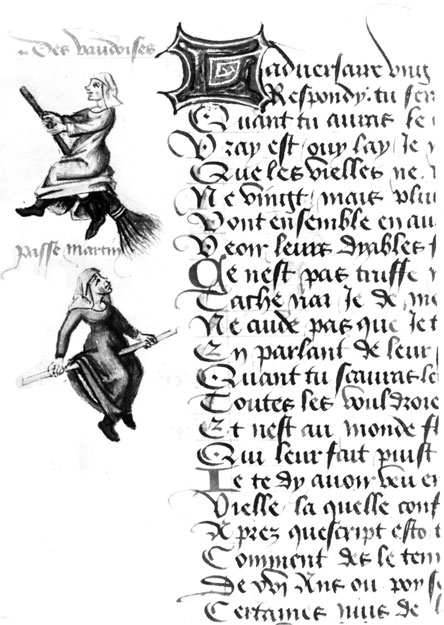 Des vaudoises
passe martin
Ladversaire vng
Respondy. tu ser
Quant tu auras le
Vray est ouy lay Je
Que les vielles ne
Ne vingt mais plu
Vont ensemble en au
Veoir leurs dyables
Ce nest pas truffe
Je de me
Ne cuide pas que Je t
En parlant de leur
Quant tu scauras le
Toutes les vouldroie
Et nest au monde fl
Qui leur fait puist
Je te dy avoir veu en
Vielle la quelle conf
Aprez quescript esto t
Comment des le tem
De xvi Ans ou poy s
Certaines nuis de l